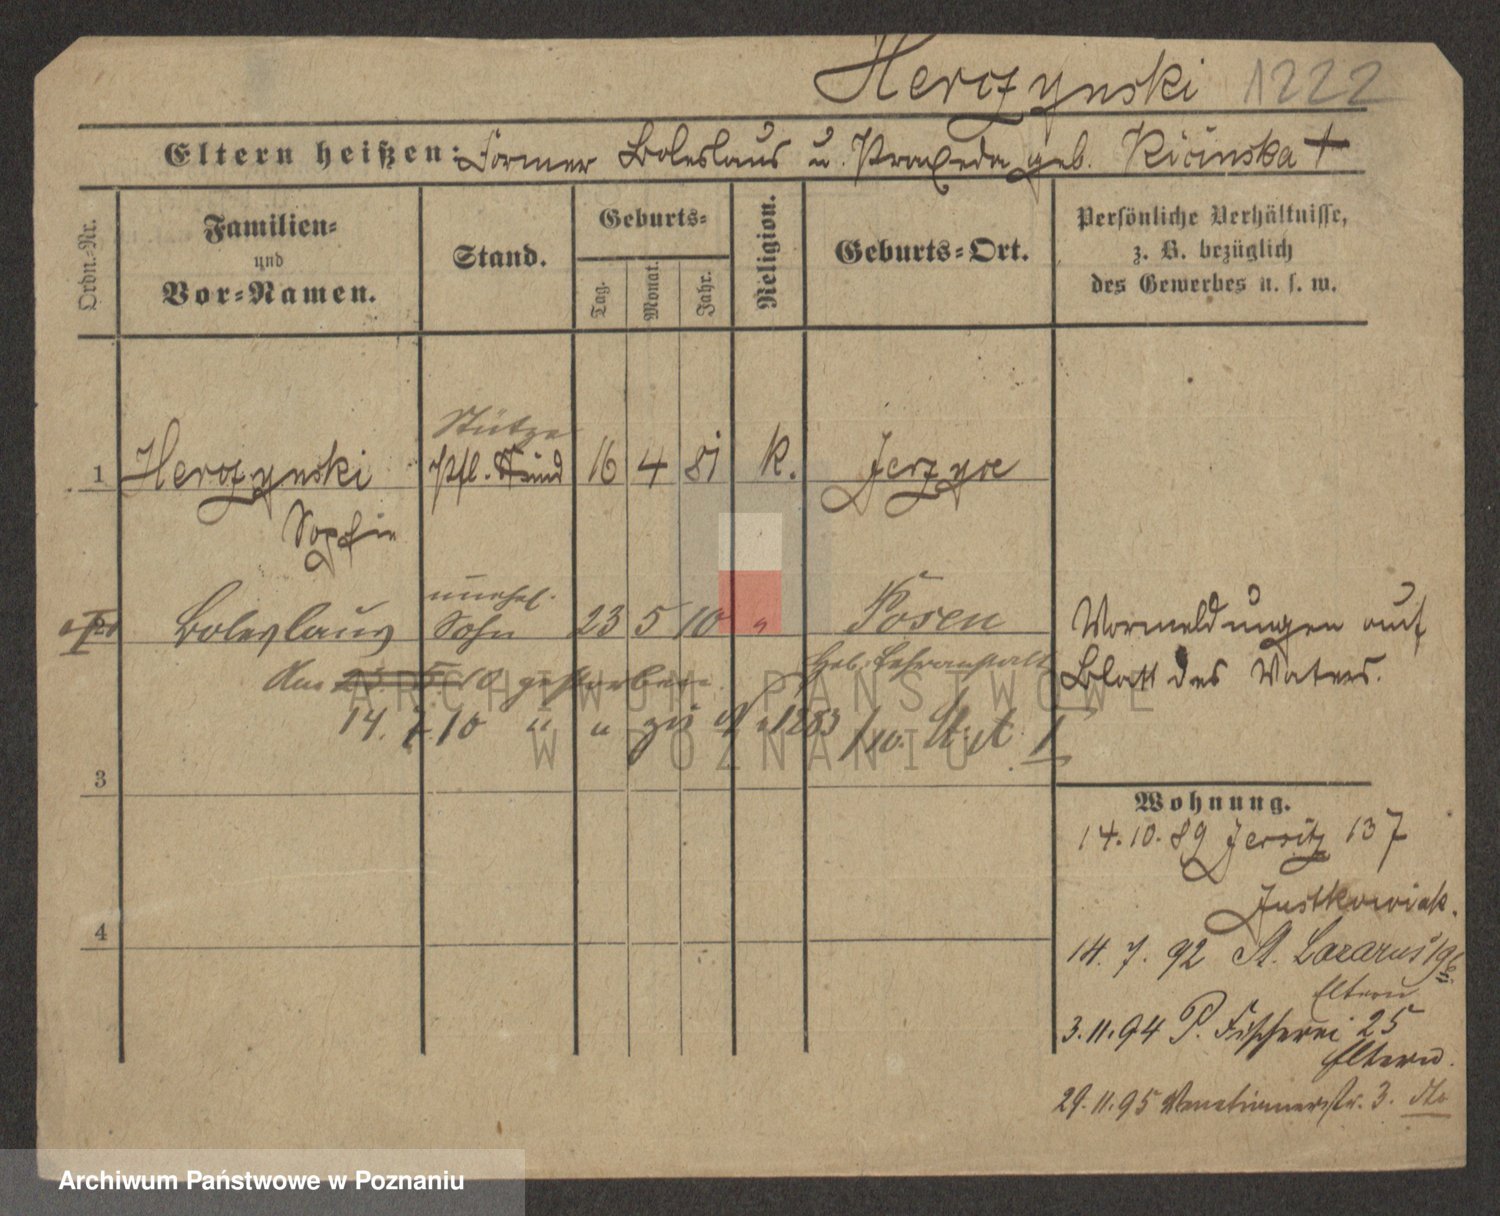 Herczynski 1222
Eltern heißen: Former Boleslaus u. Praxeda geb. Kicinska †
Ordn.-Nr.
Familien-
und
Vor-Namen.
Stand.
Geburts-
Tag.
Monat.
Jahr.
Religion.
Geburts-Ort.
Persönliche Verhältnisse,
z. B. bezüglich
des Gewerbes u. s. w.
Stütze
1 Herczynski Pfl. Kind 16 4 81 K. Jerzyce
Sophie
unehel.
Boleslaus Sohn 23 5 10 " Posen
Geb. Lehranstalt
Vormeldungen auf
Blatt des Vaters.
Am 23. 5. 10 gestorben
14. 7. 10 " " 1283/10. St. A. I
3
4
Wohnung.
14.10.89 Jersitz 137
Justkowiak.
14. 7. 92 St. Lazarus 19b
Eltern
3.11.94 P. Fischerei 25
Eltern.
29.11.95 Venetianerstr. 3. dto
ARCHIWUM PAŃSTWOWE
W POZNANIU
Archiwum Państwowe w Poznaniu